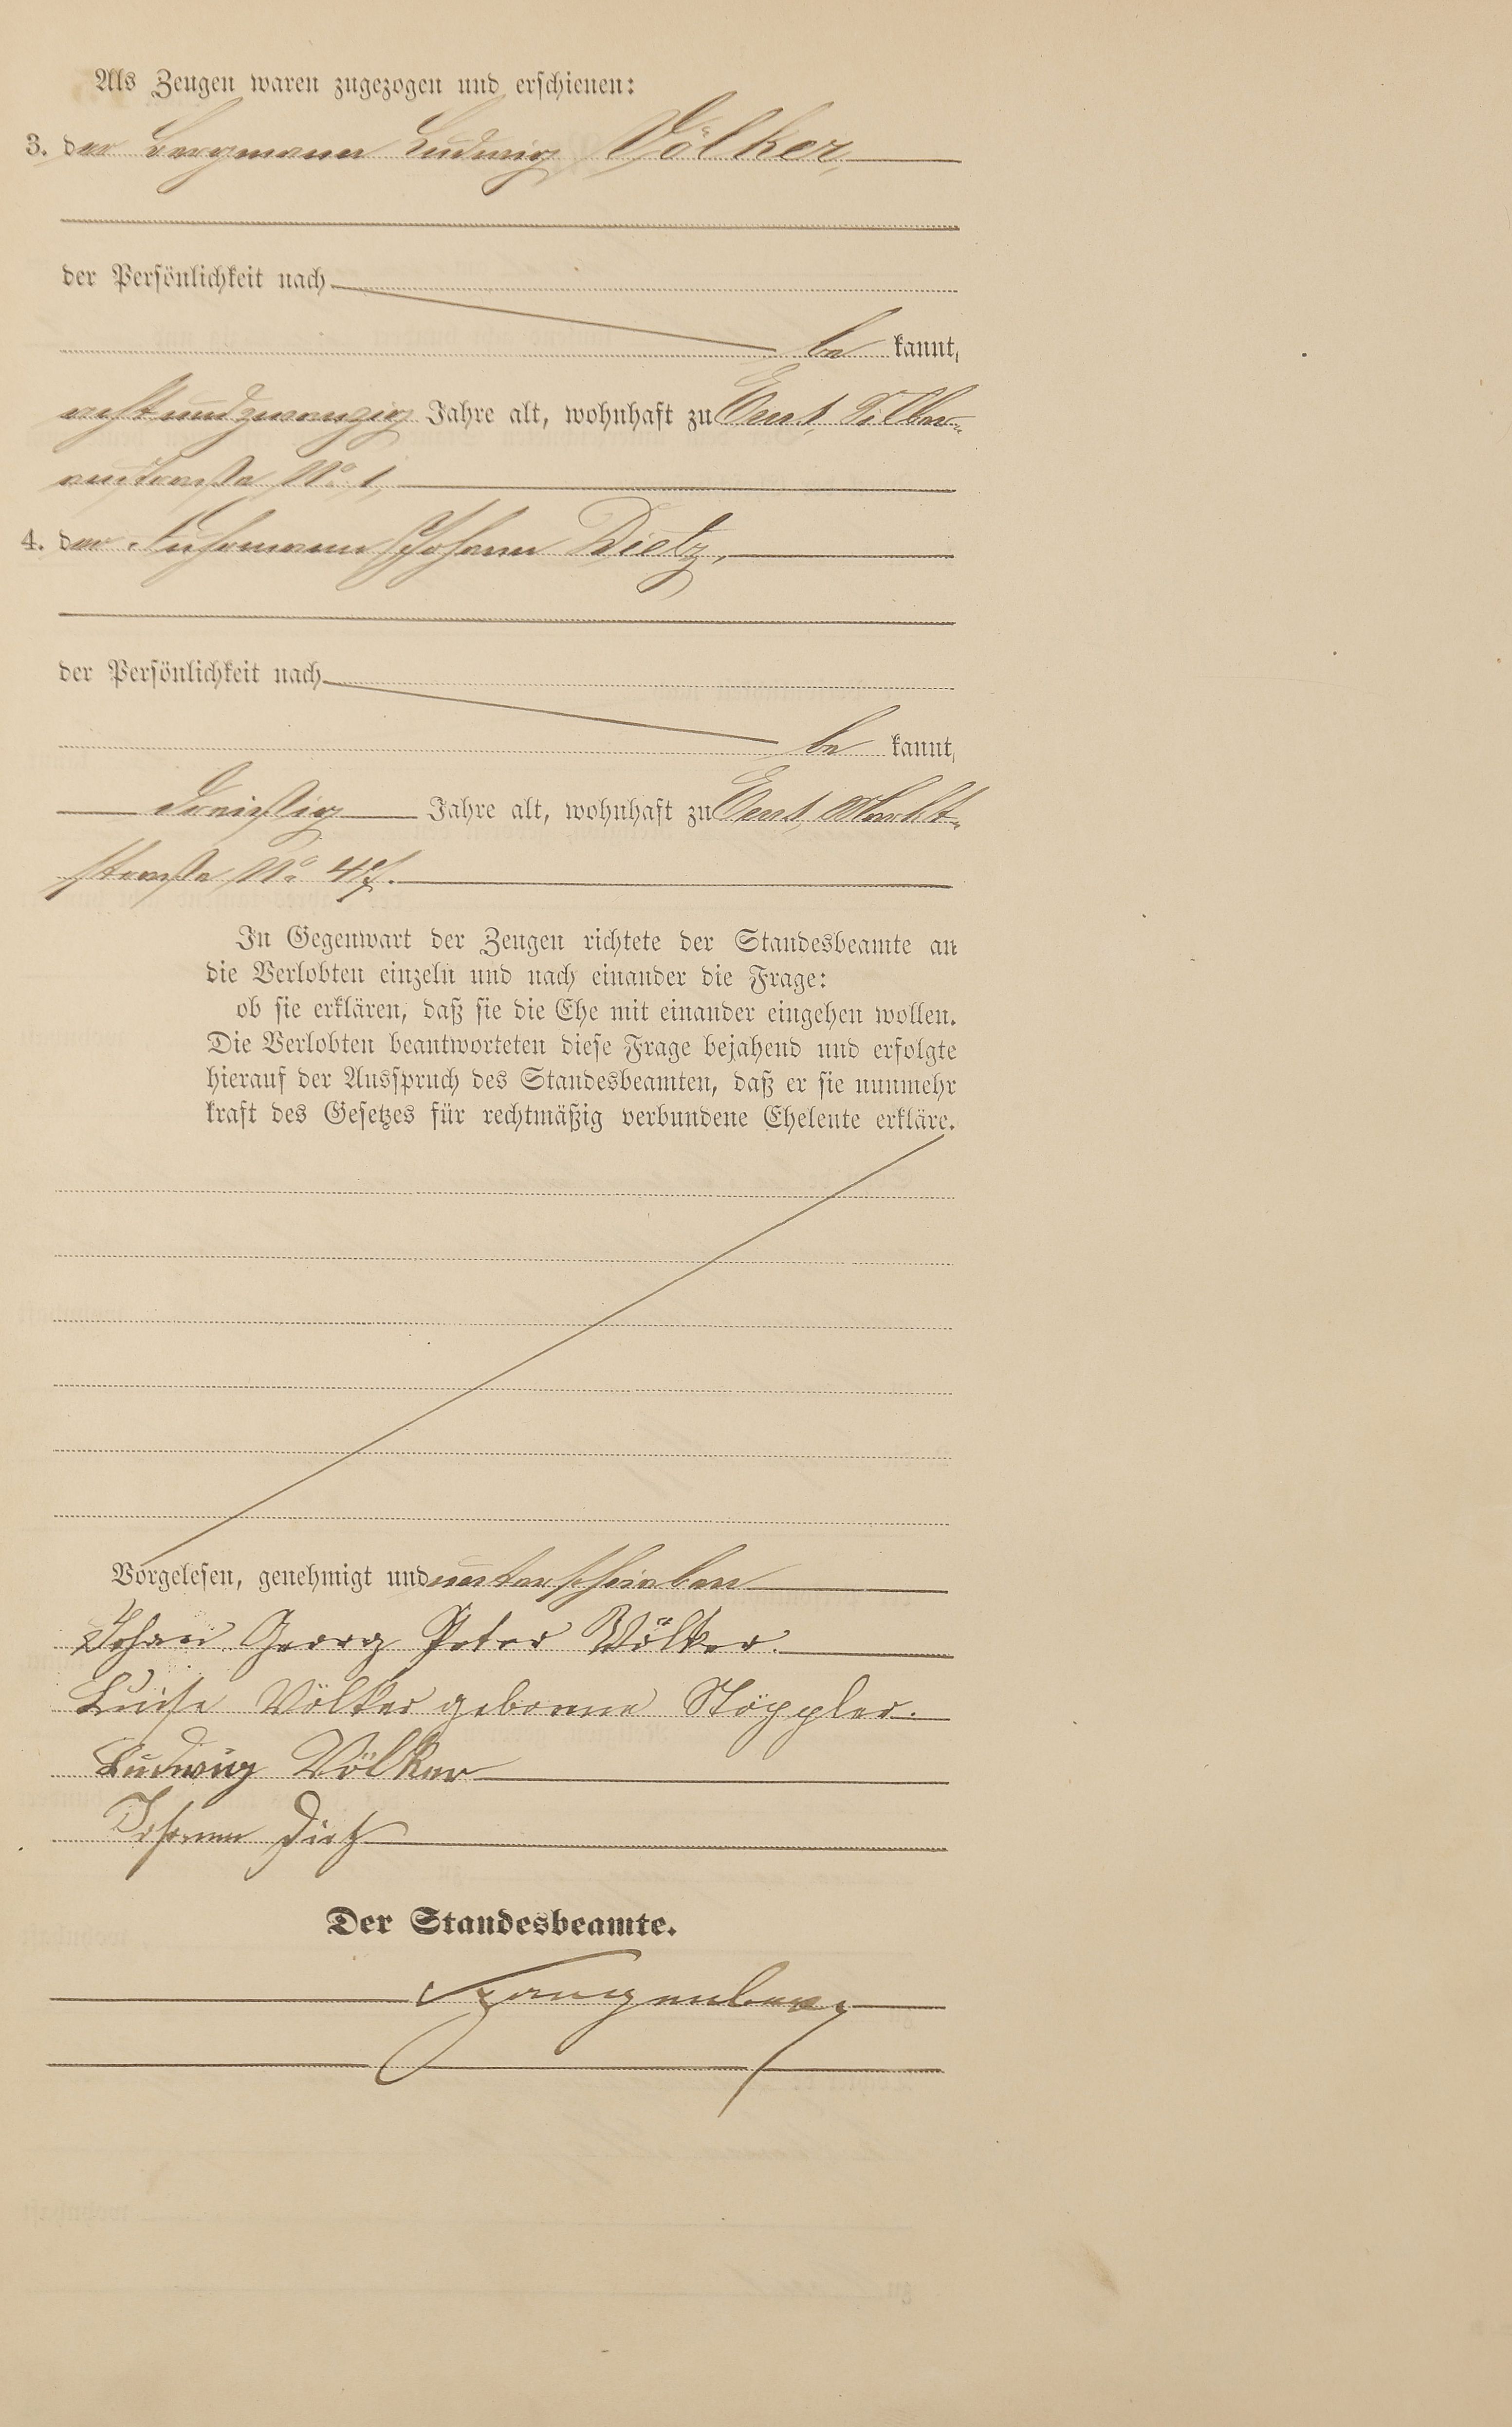 Als Zeugen waren zugezogen und erschienen:
3. der Bergmann Ludwig Völker,
der Persönlichkeit nach
be kannt,
achtundzwanzig Jahre alt, wohnhaft zu Ems, Silber-
austraße No 1,
4. der Fuhrmann Johann Dietz,
der Persönlichkeit nach
be kannt,
dreißig Jahre alt, wohnhaft zu Ems, Markt-
straße No 47.
In Gegenwart der Zeugen richtete der Standesbeamte an
die Verlobten einzeln und nach einander die Frage:
ob sie erklären, daß sie die Ehe mit einander eingehen wollen.
Die Verlobten beantworteten diese Frage bejahend und erfolgte
hierauf der Ausspruch des Standesbeamten, daß er sie nunmehr
kraft des Gesetzes für rechtmäßig verbundene Eheleute erkläre.
Vorgelesen, genehmigt und unterschrieben
Johann Georg Peter Völker.
Luise Völker geborene Stöppler.
Ludwig Völker
Johann Dietz
Der Standesbeamte.